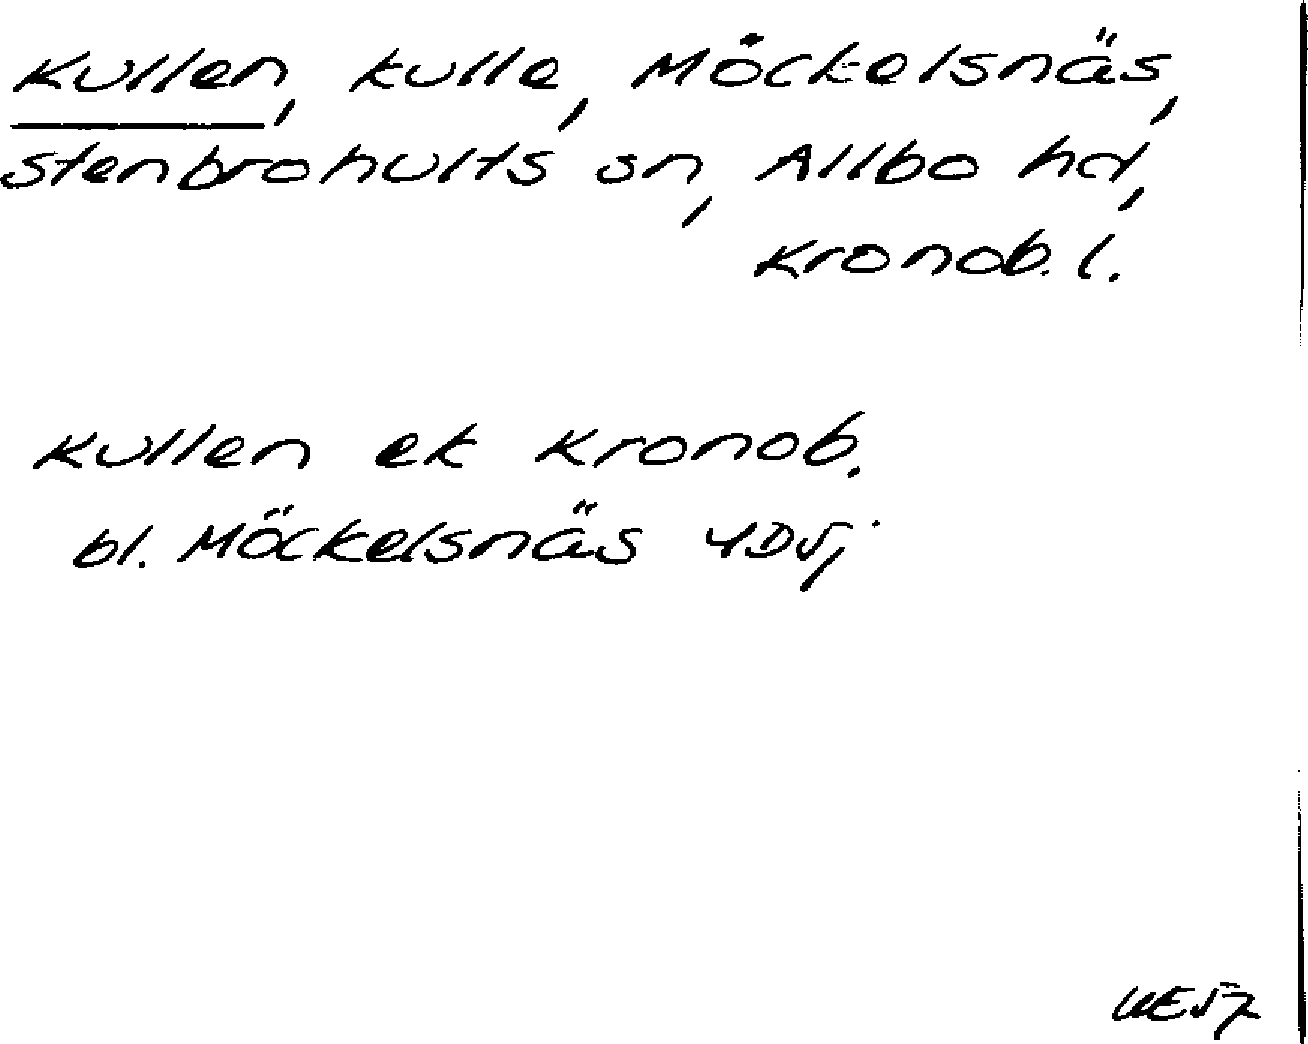 Kullen, kulle, Möckelsnäs,
Stenbrohults sn, Allbo hd,
Kronob. l.
Kullen ek Kronob.
bl. Möckelsnäs 4D5j